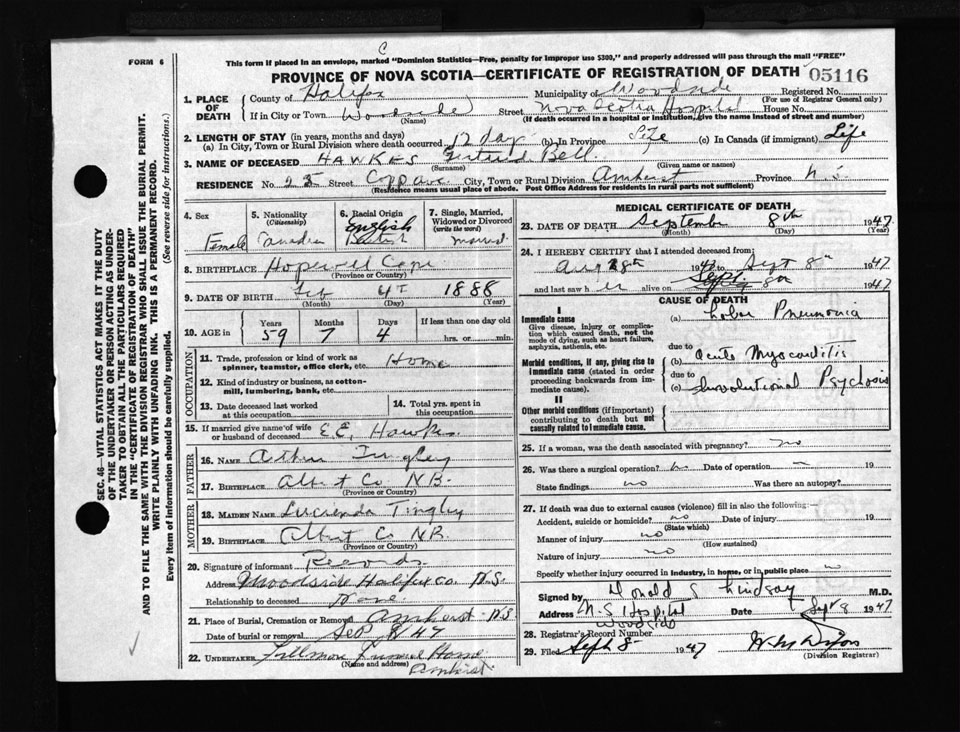 FORM 6
C
This form if placed in an envelope, marked "Dominion Statistics—Free, penalty for improper use $300," and properly addressed will pass through the mail "FREE"
PROVINCE OF NOVA SCOTIA—CERTIFICATE OF REGISTRATION OF DEATH 05116
1. PLACE OF DEATH
County of Halifax Municipality of Woodside Registered No.
(For use of Registrar General only)
If in City or Town Woodside Street Nova Scotia Hospital House No.
(Name) (If death occurred in a hospital or institution, give the name instead of street and number)
2. LENGTH OF STAY (in years, months and days)
(a) In City, Town or Rural Division where death occurred 12 days (b) In Province Life (c) In Canada (if immigrant) Life
3. NAME OF DECEASED HAWKES Gertrud Bell
(Surname) (Given name or names)
RESIDENCE No. 25 Street Copp ave City, Town or Rural Division Amherst Province N.S.
(Residence means usual place of abode. Post Office Address for residents in rural parts not sufficient)
4. Sex Female
5. Nationality (Citizenship) Canadian
6. Racial Origin English British
7. Single, Married, Widowed or Divorced (write the word) married
8. BIRTHPLACE Hopewell Cape
(Province or Country)
9. DATE OF BIRTH Feb 4th 1888
(Month) (Day) (Year)
10. AGE in Years 59 Months 7 Days 4 If less than one day old hrs. or min.
OCCUPATION
11. Trade, profession or kind of work as spinner, teamster, office clerk, etc. Home
12. Kind of industry or business, as cotton-mill, lumbering, bank, etc.
13. Date deceased last worked at this occupation
14. Total yrs. spent in this occupation
15. If married give name of wife or husband of deceased E.E. Hawkes
FATHER
16. NAME Arthur Tingley
17. BIRTHPLACE Albert Co N.B.
(Province or Country)
MOTHER
18. MAIDEN NAME Lucrenda Tingley
19. BIRTHPLACE Albert Co N.B.
(Province or Country)
20. Signature of informant Records
Address Woodside Halifax Co. N.S.
Relationship to deceased None
21. Place of Burial, Cremation or Removal Amherst N.S.
Date of burial or removal Sept 8/47
22. UNDERTAKER Funeral Home
(Name and address) Amherst
MEDICAL CERTIFICATE OF DEATH
23. DATE OF DEATH September 8th 1947
(Month) (Day) (Year)
24. I HEREBY CERTIFY that I attended deceased from
Aug 28th 1947 to Sept 8th 1947
and last saw her alive on Sept 8th 1947
CAUSE OF DEATH
I
Immediate cause
Give disease, injury or complication which caused death, not the mode of dying, such as heart failure, asphyxia, asthenia, etc.
(a) Lobar Pneumonia
due to
Morbid conditions, if any, giving rise to immediate cause (stated in order proceeding backwards from immediate cause).
(b) Acute Myocarditis
due to
(c) Involutional Psychosis
II
Other morbid conditions (if important) contributing to death but not causally related to immediate cause.
25. If a woman, was the death associated with pregnancy? no
26. Was there a surgical operation? no Date of operation 19
State findings no Was there an autopsy?
27. If death was due to external causes (violence) fill in also the following:—
Accident, suicide or homicide? no Date of injury 19
(State which)
Manner of injury no
(How sustained)
Nature of injury no
Specify whether injury occurred in industry, in home, or in public place
Signed by Donald S Lindsay M.D.
Address N.S Hospital Woodside Date Sept 8 1947
28. Registrar's Record Number
29. Filed Sept 8 1947
(Division Registrar)
SEC. 46—VITAL STATISTICS ACT MAKES IT THE DUTY
OF THE UNDERTAKER OR PERSON ACTING AS UNDER-
TAKER TO OBTAIN ALL THE PARTICULARS REQUIRED
IN THE "CERTIFICATE OF REGISTRATION OF DEATH"
AND TO FILE THE SAME WITH THE DIVISION REGISTRAR WHO SHALL ISSUE THE BURIAL PERMIT.
WRITE PLAINLY WITH UNFADING INK. THIS IS A PERMANENT RECORD.
Every item of information should be carefully supplied. (See reverse side for instructions.)